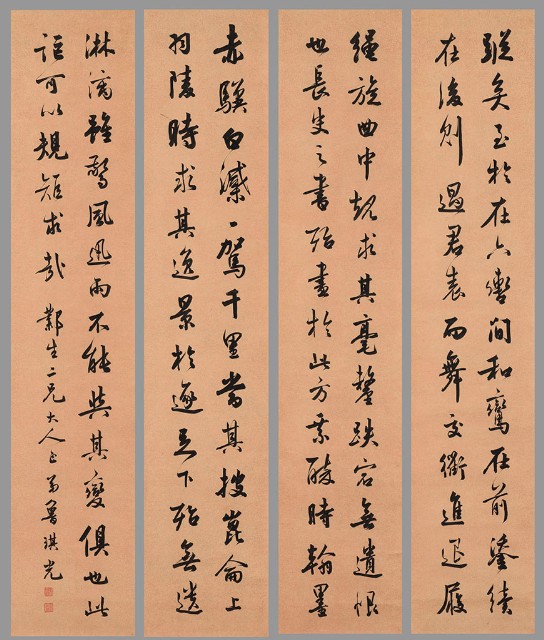 蹤矣至於在六轡間和鸞在前鋈續
在後則過君表而舞交衢進退履
繩旋曲中規求其毫釐跌宕無遺恨
也長史之書殆盡於此方乘醉時翰墨
赤驥白㵣一駕千里當其披崑崙上
羽陵時求其逸景於逐足下殆無遺
淋漓雖驚風迅雨不能與其變俱也此
詎可以規矩求哉 鄴生二兄大人正 弟魯琪光